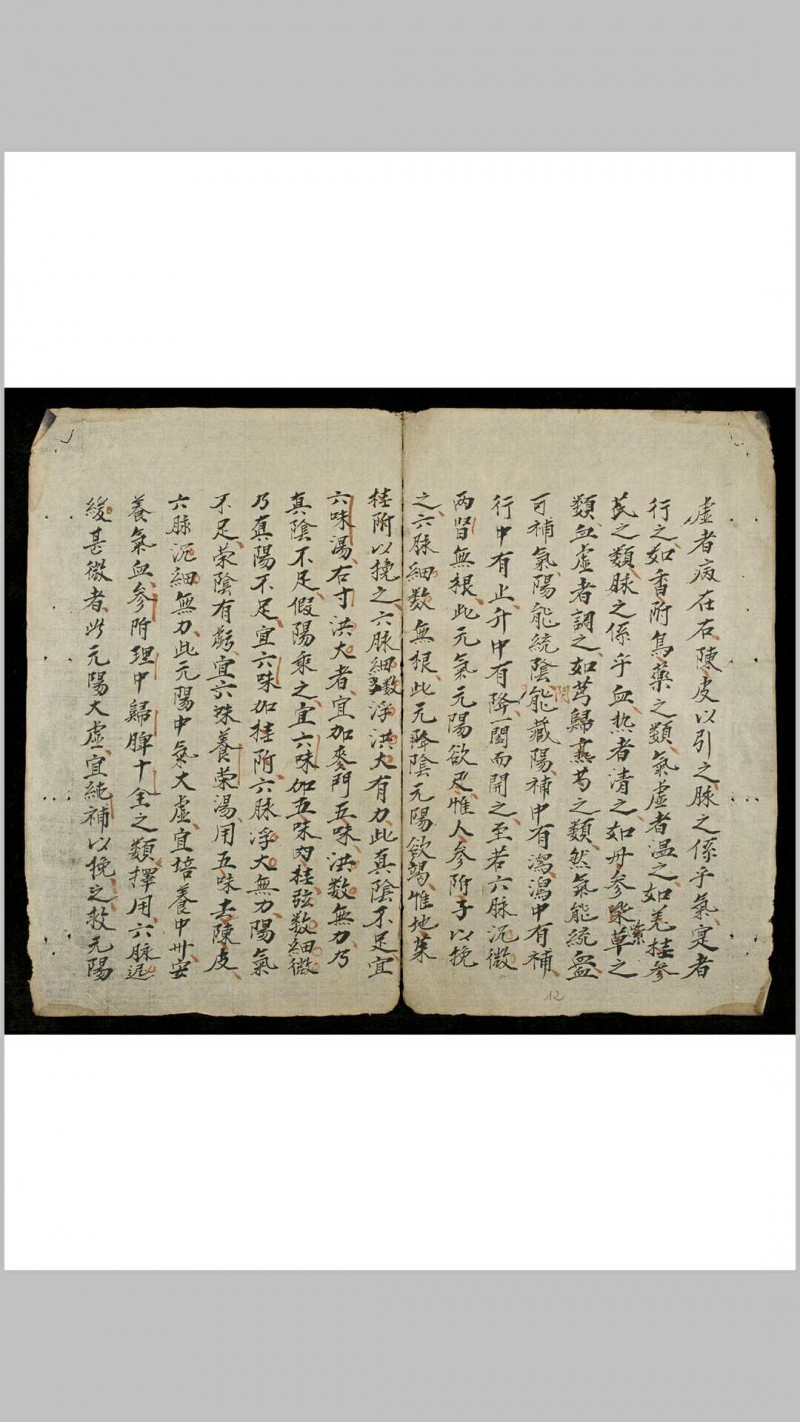 虛者病在右陳皮以引之脉之係乎氣寔者
行之如香附烏藥之類氣虛者温之如羌桂參
芪之類脉之係乎血热者清之如丹參柴草之
紫
類血虛者調之如芎歸熹芍之類然氣能統血
可補氣陽能統陰能藏陽補中有瀉瀉中有補
行中有止升中有降一闔而開之至若六脉沉微
兩腎無根此元氣元陽欲尽惟人參附子以挽
之六脉細数無根此元降陰元陽欲竭惟地菜
桂附以挽之六脉細数浮洪大有力此真陰不足宜
六味湯右寸洪大者宜加麥門五味洪数無力乃
真陰不足假陽乘之宜六味加五味肉桂弦数細微
乃真陽不足宜六味加桂附六脉浮大無力陽氣
不足荣陰有虧宜六味養荣湯用五味去陳皮
六脉沉細無力此元陽中氣大虛宜培養中卅寔
養氣血參附理中歸脾十全之類擇用六脉遲
緩甚微者此元陽大虛宜純補以挽之救元陽
12